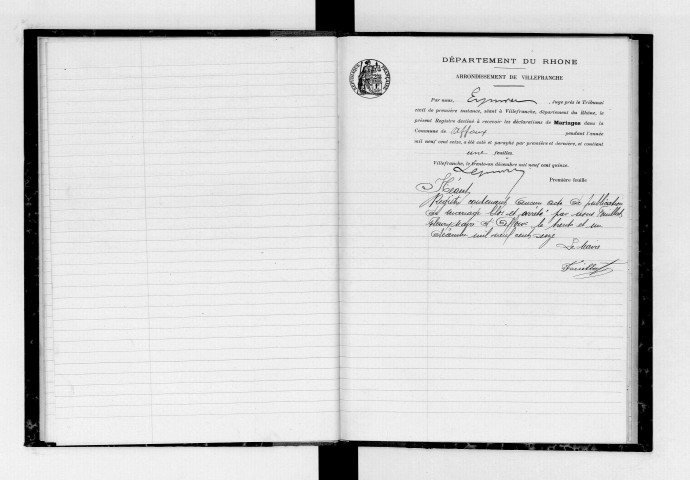 DÉPARTEMENT DU RHONE
ARRONDISSEMENT DE VILLEFRANCHE
Par nous, Juge près le Tribunal
civil de première instance, séant à Villefranche, département du Rhône, le
présent Registre destiné à recevoir les déclarations de Mariages dans la
Commune de Affoux pendant l'année
mil neuf cent seize, a été coté et paraphé par première et dernière, et contient
feuilles.
Villefranche, le trente-un décembre mil neuf cent quinze.
Première feuille
Néant
Registre contenant aucun acte de publication
de mariage clos et arrêté par nous
maire d'Affoux le trente et un
décembre mil neuf cent seize
Le Maire